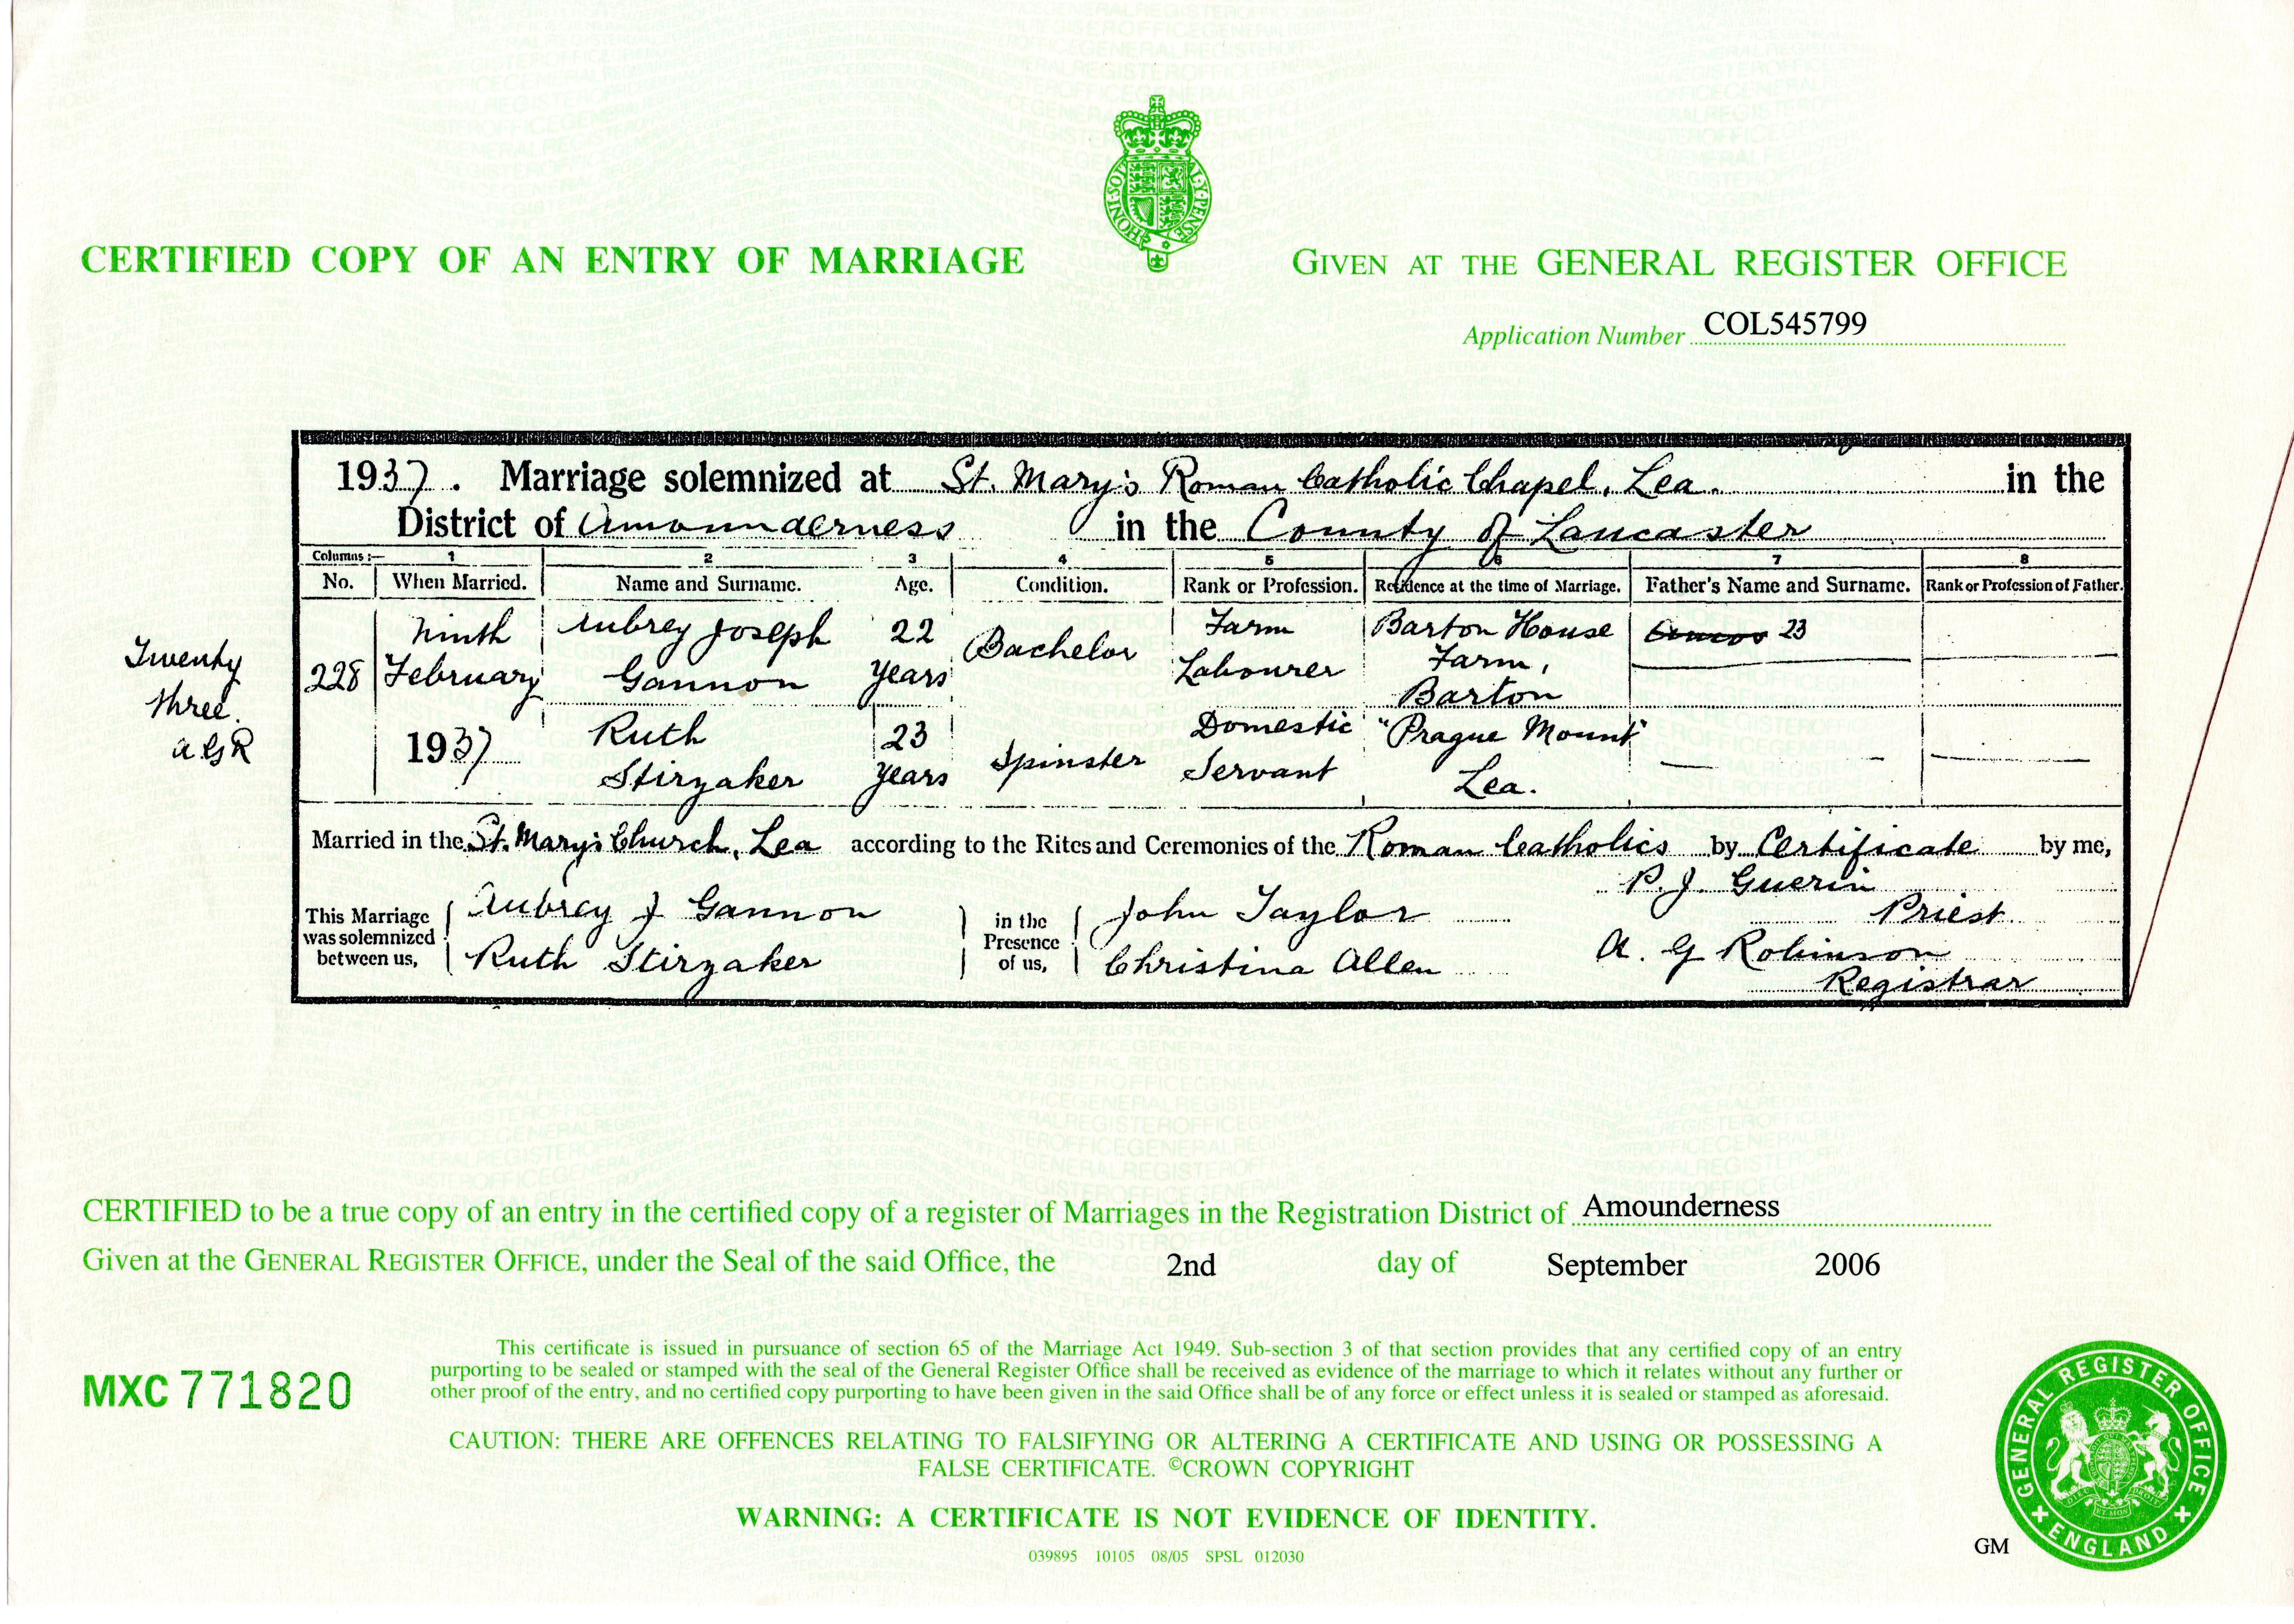 CERTIFIED COPY OF AN ENTRY OF MARRIAGE
HONI SOIT QUI MAL Y PENSE
GIVEN AT THE GENERAL REGISTER OFFICE
Application Number COL545799
1937. Marriage solemnized at St. Mary's Roman Catholic Chapel, Lea. in the
District of Amounderness in the County of Lancaster
Columns:— 1 2 3 4 5 6 7 8
No. When Married. Name and Surname. Age. Condition. Rank or Profession. Residence at the time of Marriage. Father's Name and Surname. Rank or Profession of Father.
Twenty
three.
A G R
228 Ninth February 1937
Aubrey Joseph Gannon 22 years Bachelor Farm Labourer Barton House Farm, Barton 23
Ruth Stirzaker 23 years Spinster Domestic Servant "Prague Mount" Lea. — —
Married in the St. Mary's Church, Lea according to the Rites and Ceremonies of the Roman Catholics by Certificate by me,
P. J. Guerin
Priest.
This Marriage was solemnized between us,
Aubrey J Gannon
Ruth Stirzaker
in the Presence of us,
John Taylor
Christina Allen
A. G Robinson
Registrar
CERTIFIED to be a true copy of an entry in the certified copy of a register of Marriages in the Registration District of Amounderness
Given at the GENERAL REGISTER OFFICE, under the Seal of the said Office, the 2nd day of September 2006
MXC 771820
This certificate is issued in pursuance of section 65 of the Marriage Act 1949. Sub-section 3 of that section provides that any certified copy of an entry
purporting to be sealed or stamped with the seal of the General Register Office shall be received as evidence of the marriage to which it relates without any further or
other proof of the entry, and no certified copy purporting to have been given in the said Office shall be of any force or effect unless it is sealed or stamped as aforesaid.
CAUTION: THERE ARE OFFENCES RELATING TO FALSIFYING OR ALTERING A CERTIFICATE AND USING OR POSSESSING A
FALSE CERTIFICATE. ©CROWN COPYRIGHT
WARNING: A CERTIFICATE IS NOT EVIDENCE OF IDENTITY.
039895 10105 08/05 SPSL 012030
GM
GENERAL REGISTER OFFICE
ENGLAND